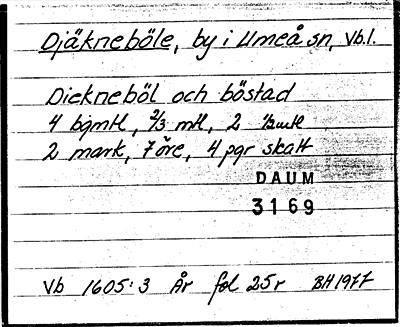 Djäkneböle, by i Umeå sn, Vb.l.
Diekneböl och böstad
4 bgmtl, 2/3 mtl, 2 1/2mtl
2 mark, 7 öre, 4 pgr skatt
DAUM
3169
Vb 1605:3 År fol 25r BH 1977